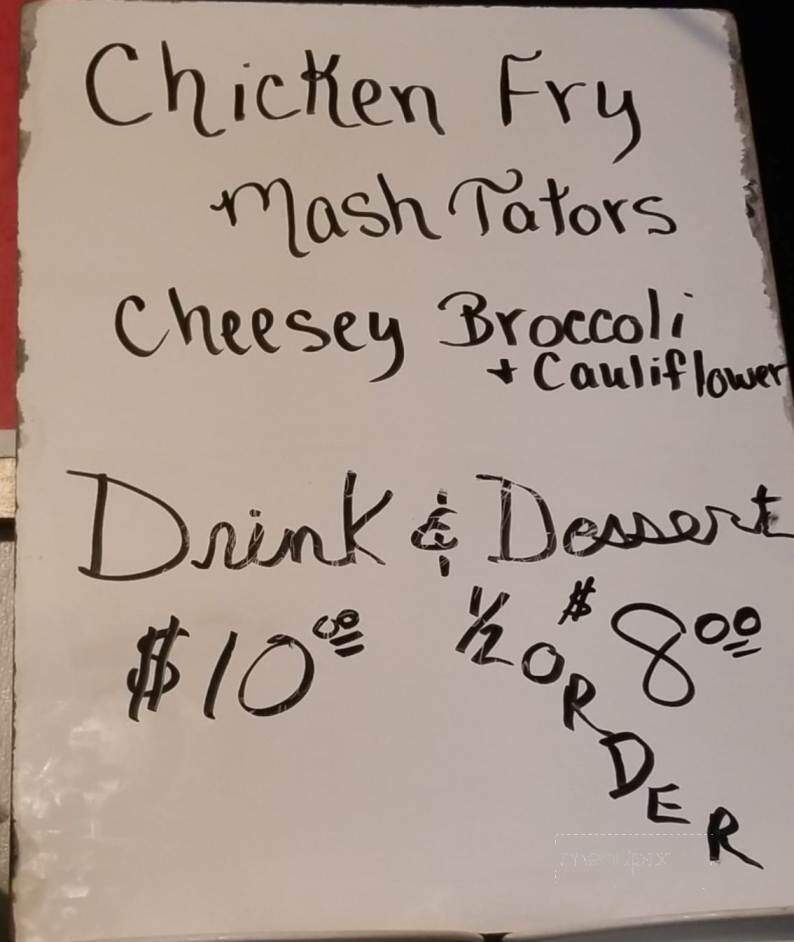 Chicken Fry
Mash Tators
Cheesey Broccoli
+ Cauliflower
Drink & Dessert
$10 00 1/2 ORDER $8 00
menupix